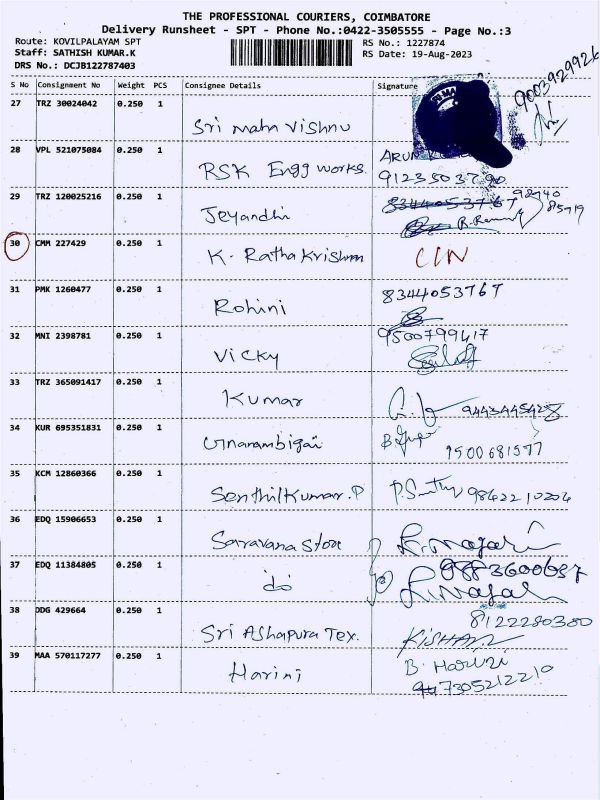 THE PROFESSIONAL COURIERS, COIMBATORE
Delivery Runsheet - SPT - Phone No.:0422-3505555 - Page No.:3
Route: KOVILPALAYAM SPT
Staff: SATHISH KUMAR.K
DRS No.: DCJB122787403
RS No.: 1227874
RS Date: 19-Aug-2023
S No Consignment No Weight PCS Consignee Details Signature
9003929926
27 TRZ 30024042 0.250 1
Sri maha vishnu
28 VPL 521075084 0.250 1 ARUN
RSK Engg works. 9123503790
29 TRZ 120025216 0.250 1 8344053767
Jeyandhi
30 CMM 227429 0.250 1
K. Ratha Krishnan
31 PMK 1260477 0.250 1 8344053767
Rohini
32 MNI 2398781 0.250 1 9500799417
Vicky
33 TRZ 365091417 0.250 1
Kumar 9443445428
34 KUR 695351831 0.250 1
9500681577
35 KCM 12860366 0.250 1
Senthilkumar.P 9842210204
36 EDQ 15906653 0.250 1
Saravana Store
37 EDQ 11384805 0.250 1
do
38 DDG 429664 0.250 1 8122280300
Sri Ashapura Tex. KISHAN
39 MAA 570117277 0.250 1
Harini 7305212210